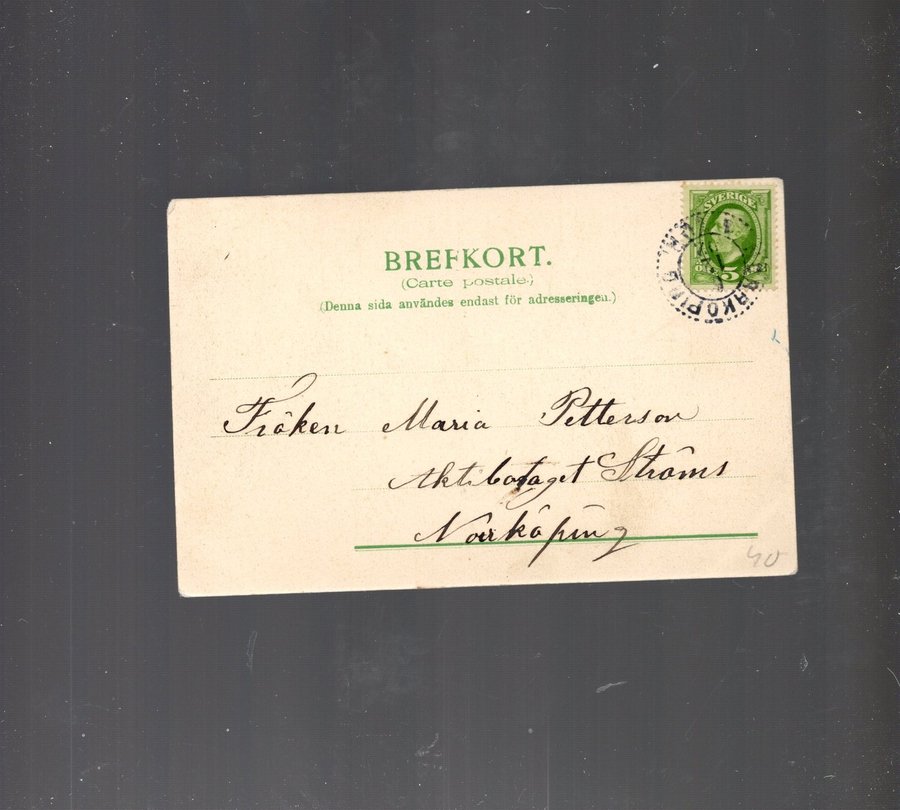 SVERIGE
5
NORRKÖPING
BREFKORT.
(Carte postale.)
(Denna sida användes endast för adresseringen.)
Fröken Maria Petterson
Aktibolaget Ströms
Norrköping
40